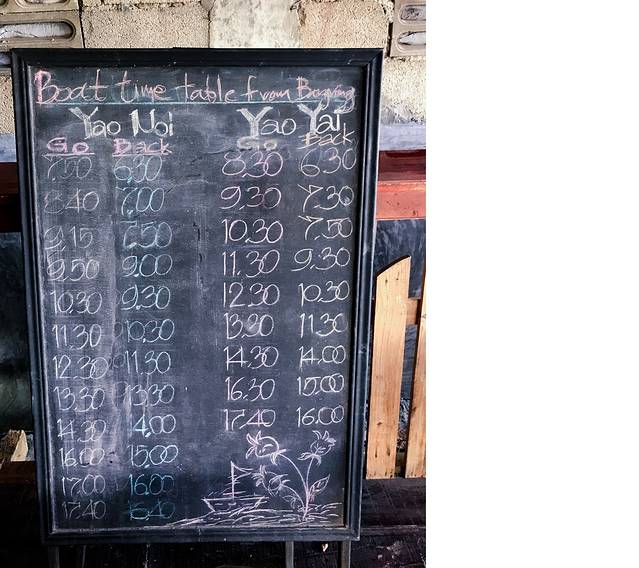 Boat time table from Bangrong
Yao Noi Yao Yai
Go Back Go Back
7,50 6,30 8.30 6.30
8.40 7.00 9,30 7,30
9,15 7.50 10.30 7,50
9,50 9.00 11,30 9,30
10,30 9.30 12.30 10.30
11,30 10,30 13,30 11.30
12.30 11.30 14.30 14.00
13,30 13,30 16.30 15.00
14,30 14.00 17.40 16.00
16.00 15.00
17.00 16.00
17.40 16.40